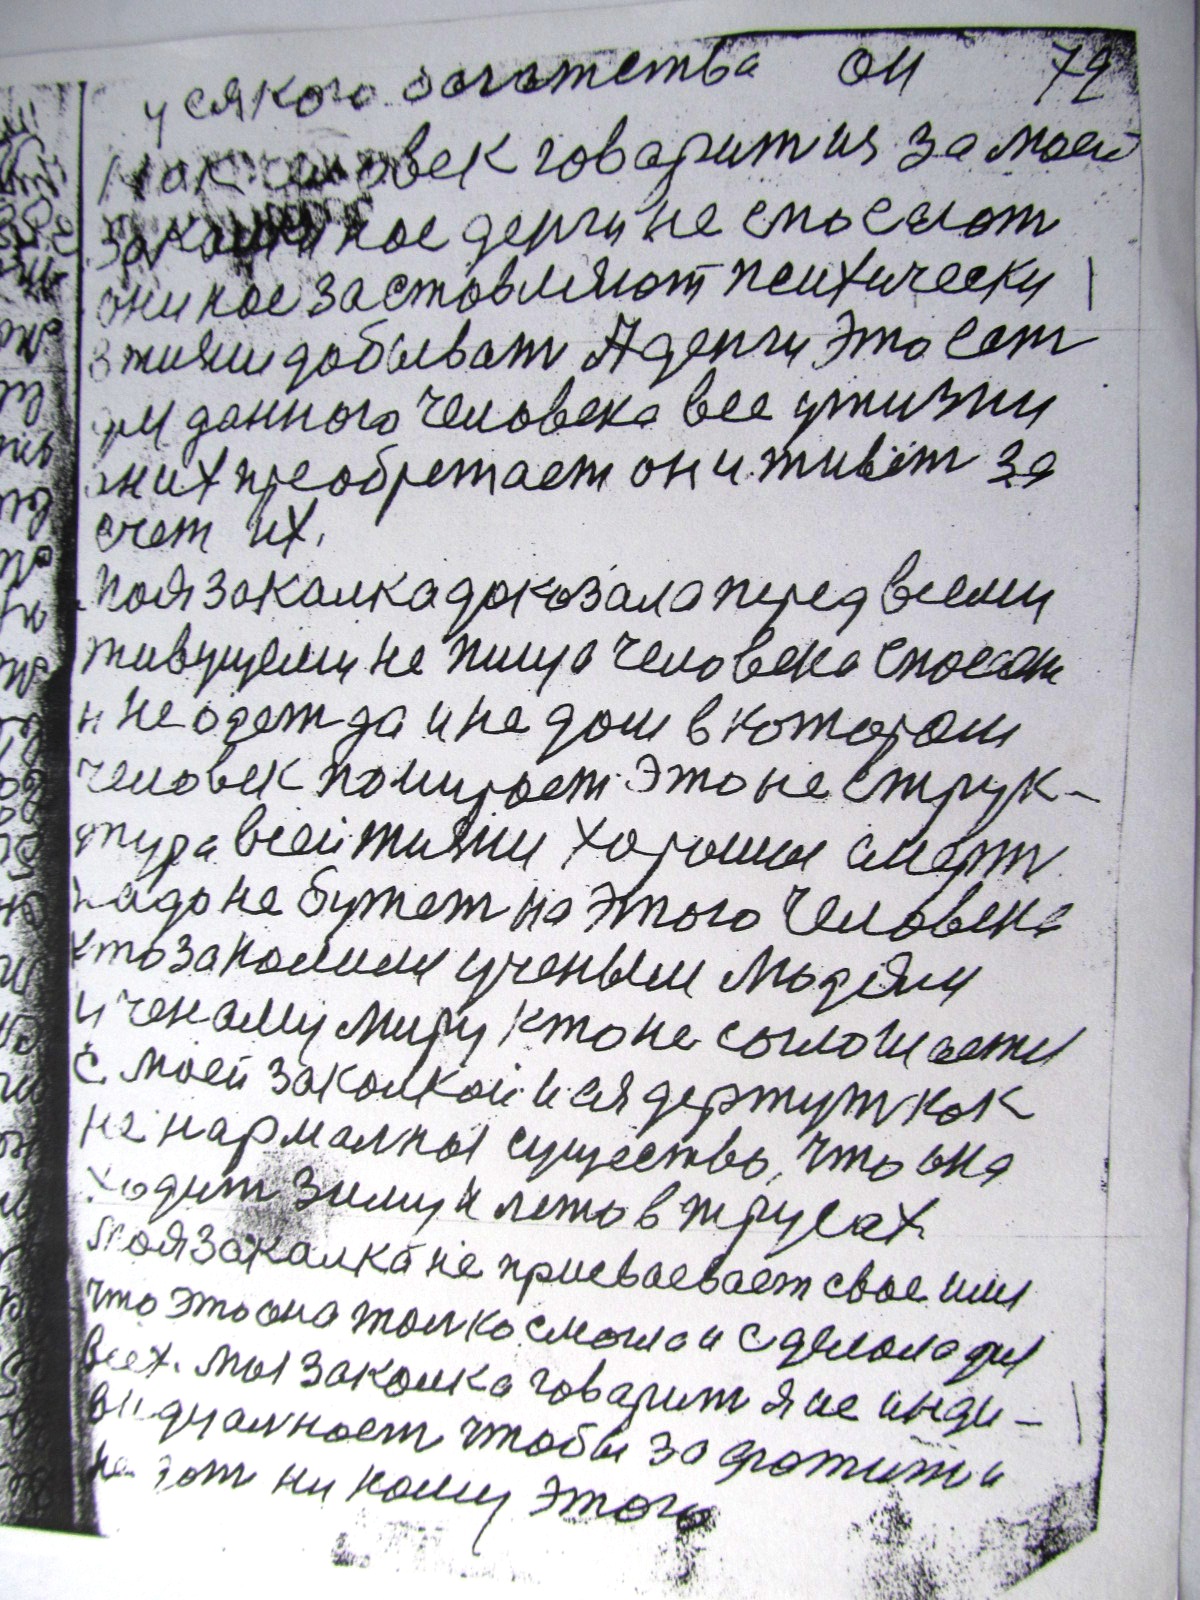 усякого богатства он 79
как человек говарит ия за моей
закалки нас денги не спосают
они нас заставляют психически
в жизни добыват А денги это сет
для данного человека все у жизни
он их преобретает он и живёт за
счет их.
Моя закалка доказала перед всеми
живущеми не пища человека спосает
и не одежда и не дом в котором
человек помирает это не струк-
тура всей жизни хорошия смерт
надо не бужет на этого человека
кто заполили ученым людями
и ченаму миру кто не соглошается
с моей закалкой ися держут как
не нармалны существо, что она
ходит зиму и лето в трусах.
Моя закалка не присваевает свое имя
что это она толко смогла и сделола для
всех. Моя закалка говарит я не инди-
видуалност чтобы задратит и
не дат ни кому этого